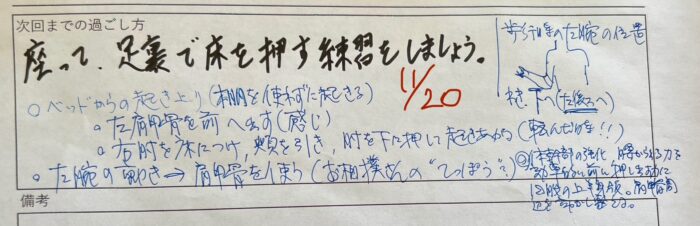 次回までの過ごし方
座って、足裏で床を押す練習をしましょう。
11/20
○ベッドからの起き上り(柵を使わずに起きる)
○左肩甲骨を前へ出す(感じ)
○右肘を床につけ、顎を引き、肘を下に押して起きあがる(転んだ時を!!)
○左腕の動き→肩甲骨を使う(お相撲さんの“てっぽう”?)
歩行時の左腕の位置
下へ(左後ろへ)
体幹部の強化
効率よく前に押し出すように
備考